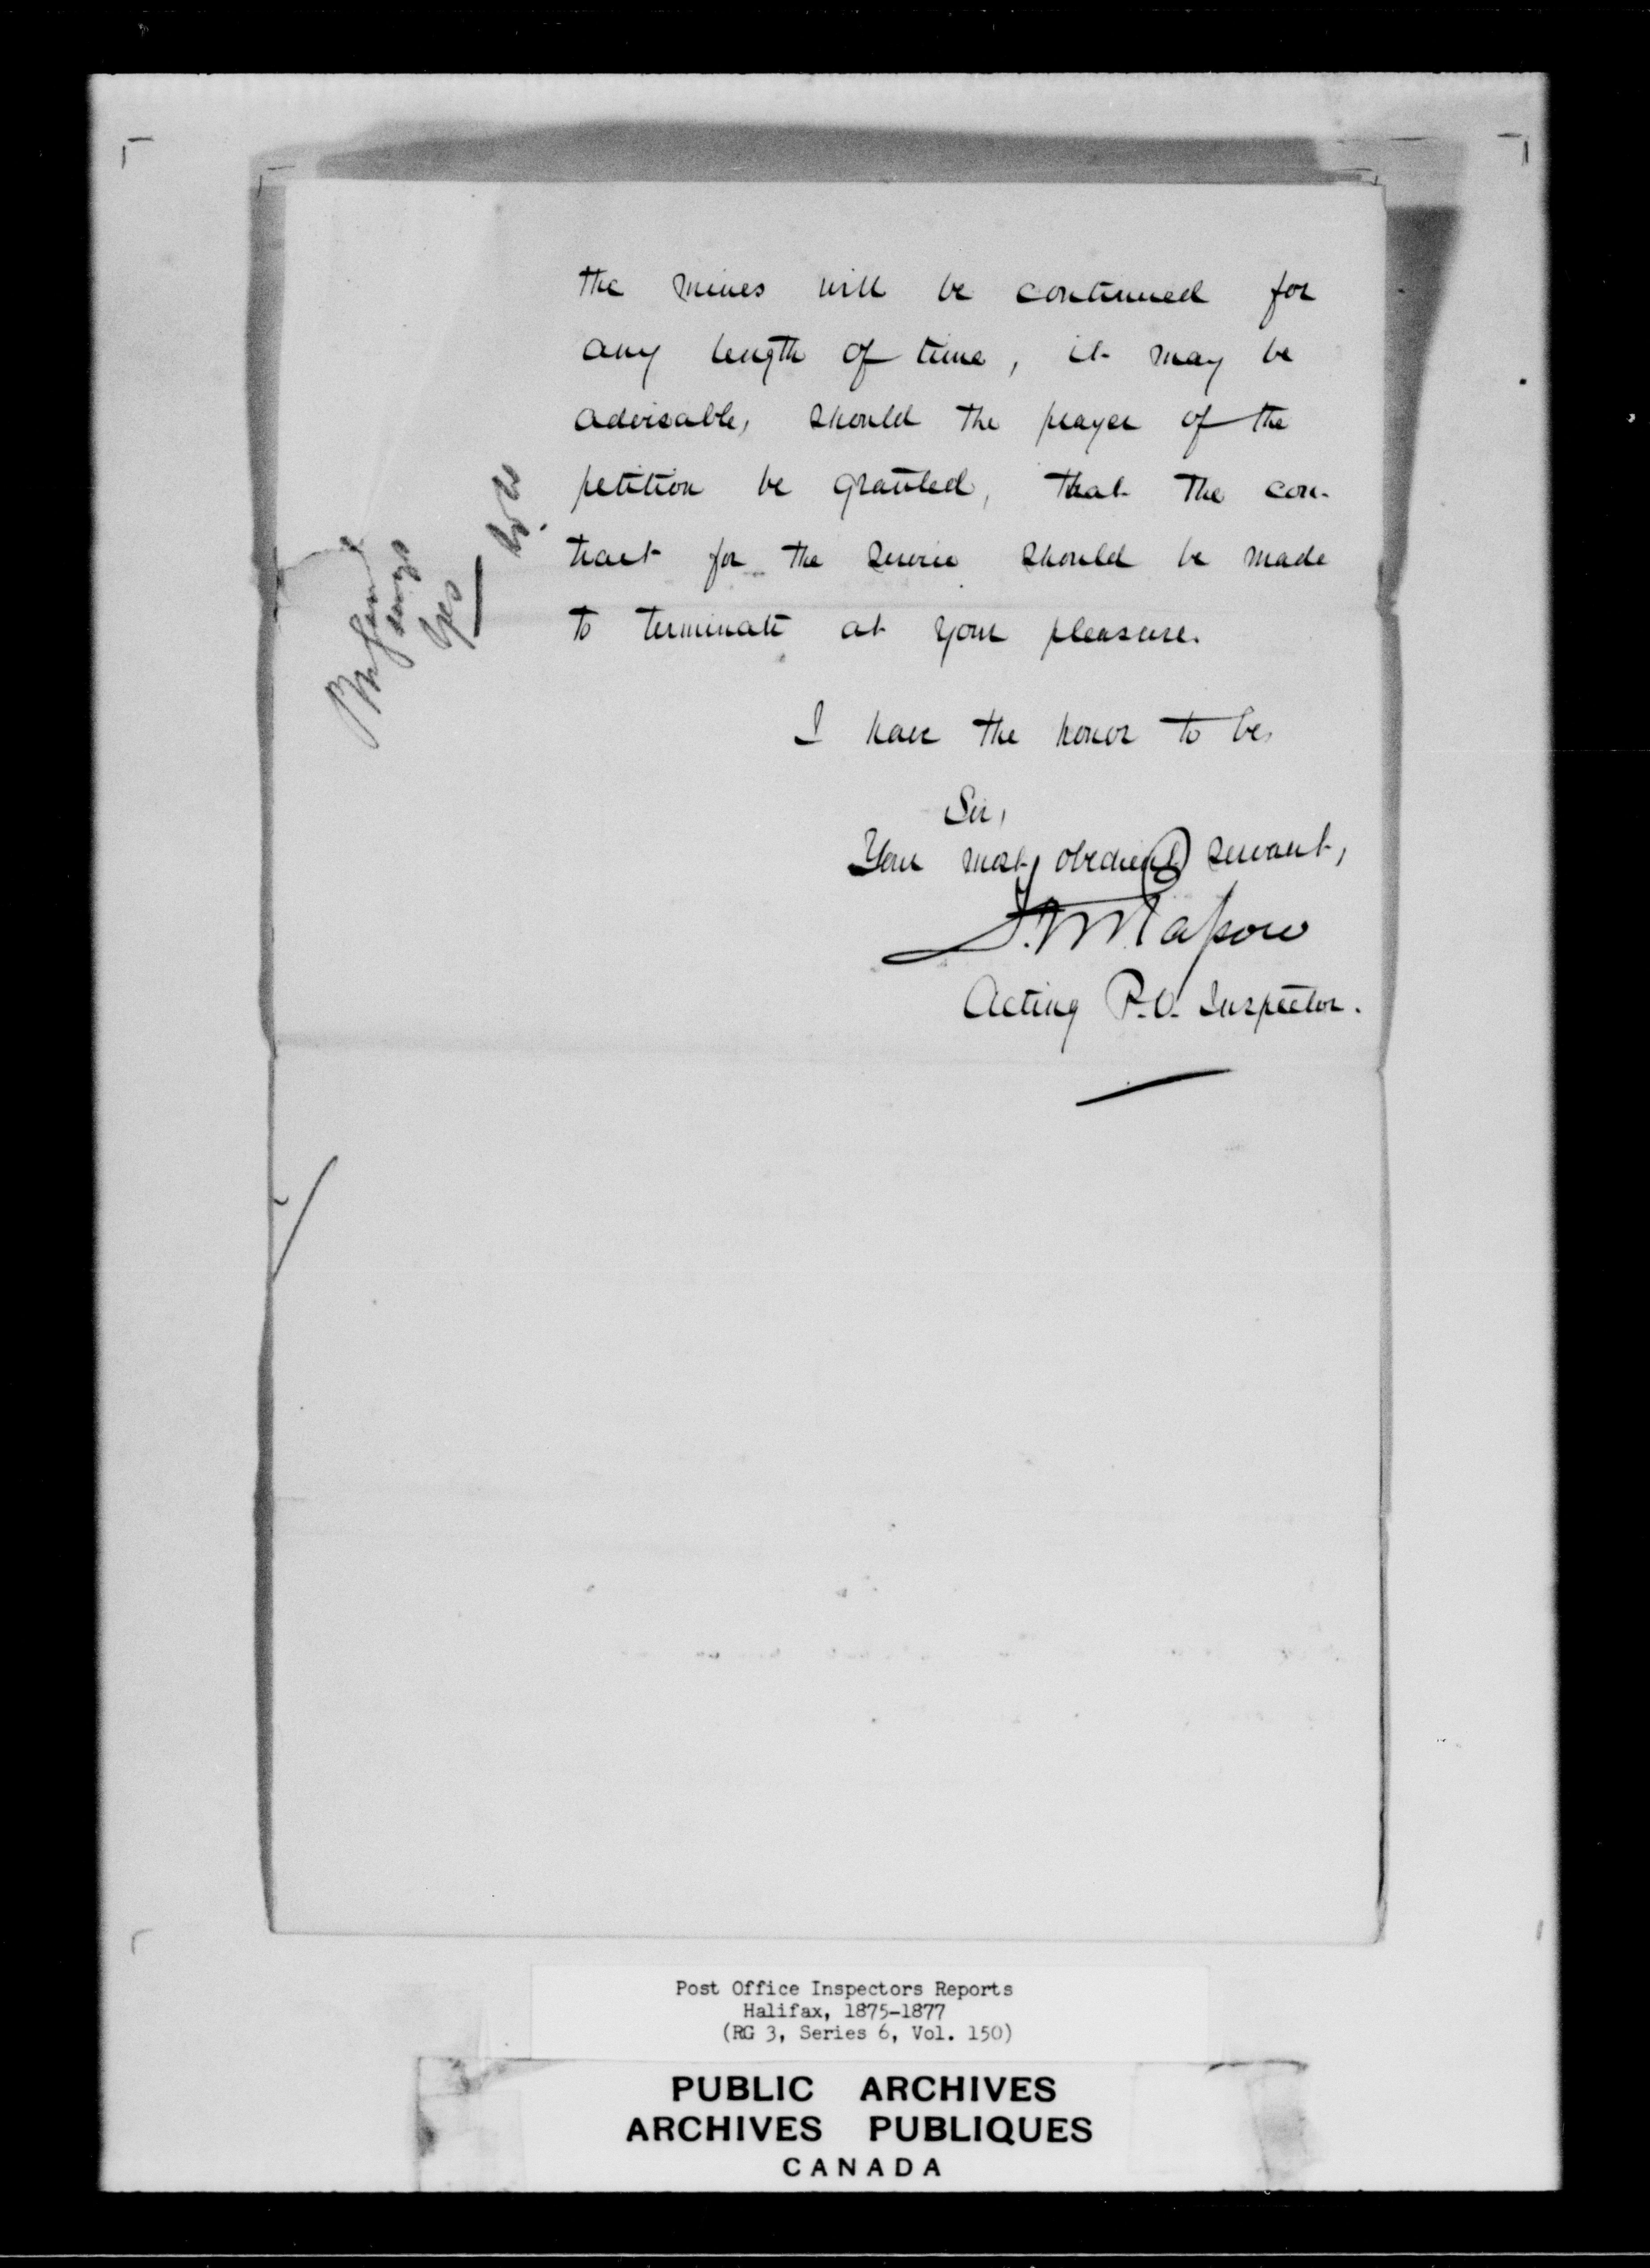 the mines will be continued for
any length of time, it may be
advisable, should the prayer of the
petition be granted, that the con-
tract for the service should be made
to terminate at your pleasure.
I have the honor to be,
Sir,
Your most obedient servant,
Acting P.O. Inspector.
says
Yes
Post Office Inspectors Reports
Halifax, 1875-1877
(RG 3, Series 6, Vol. 150)
PUBLIC ARCHIVES
ARCHIVES PUBLIQUES
CANADA